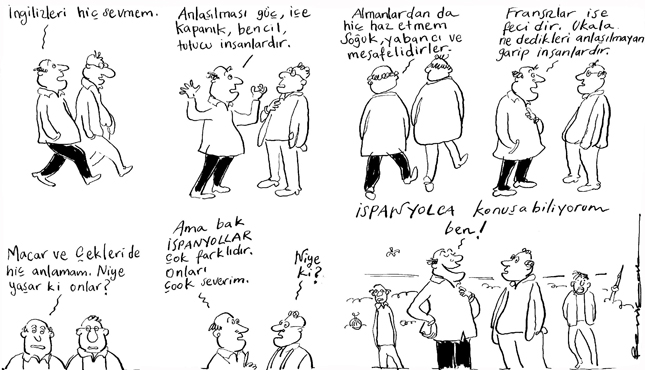 İngilizleri hiç sevmem.
Anlaşılması güç, içe
kapanık, bencil,
tutucu insanlardır.
Almanlardan da
hiç haz etmem
Soğuk, yabancı ve
mesafelidirler.
Fransızlar ise
fecidir. Ukala
ne dedikleri anlaşılmayan
garip insanlardır.
Macar ve Çekleri de
hiç anlamam. Niye
yaşar ki onlar?
Ama bak
İSPANYOLLAR
çok farklıdır.
Onları
çook severim.
Niye
ki?
İSPANYOLCA konuşabiliyorum
ben!